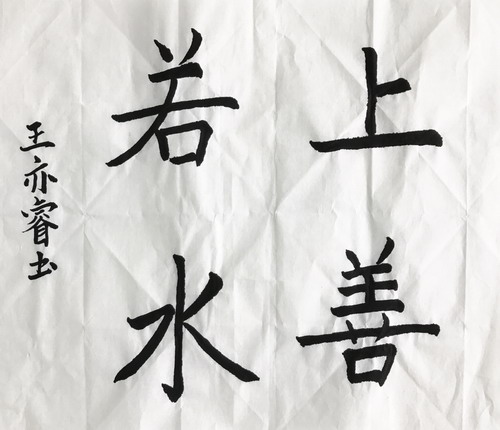 上善
若水
王亦睿书